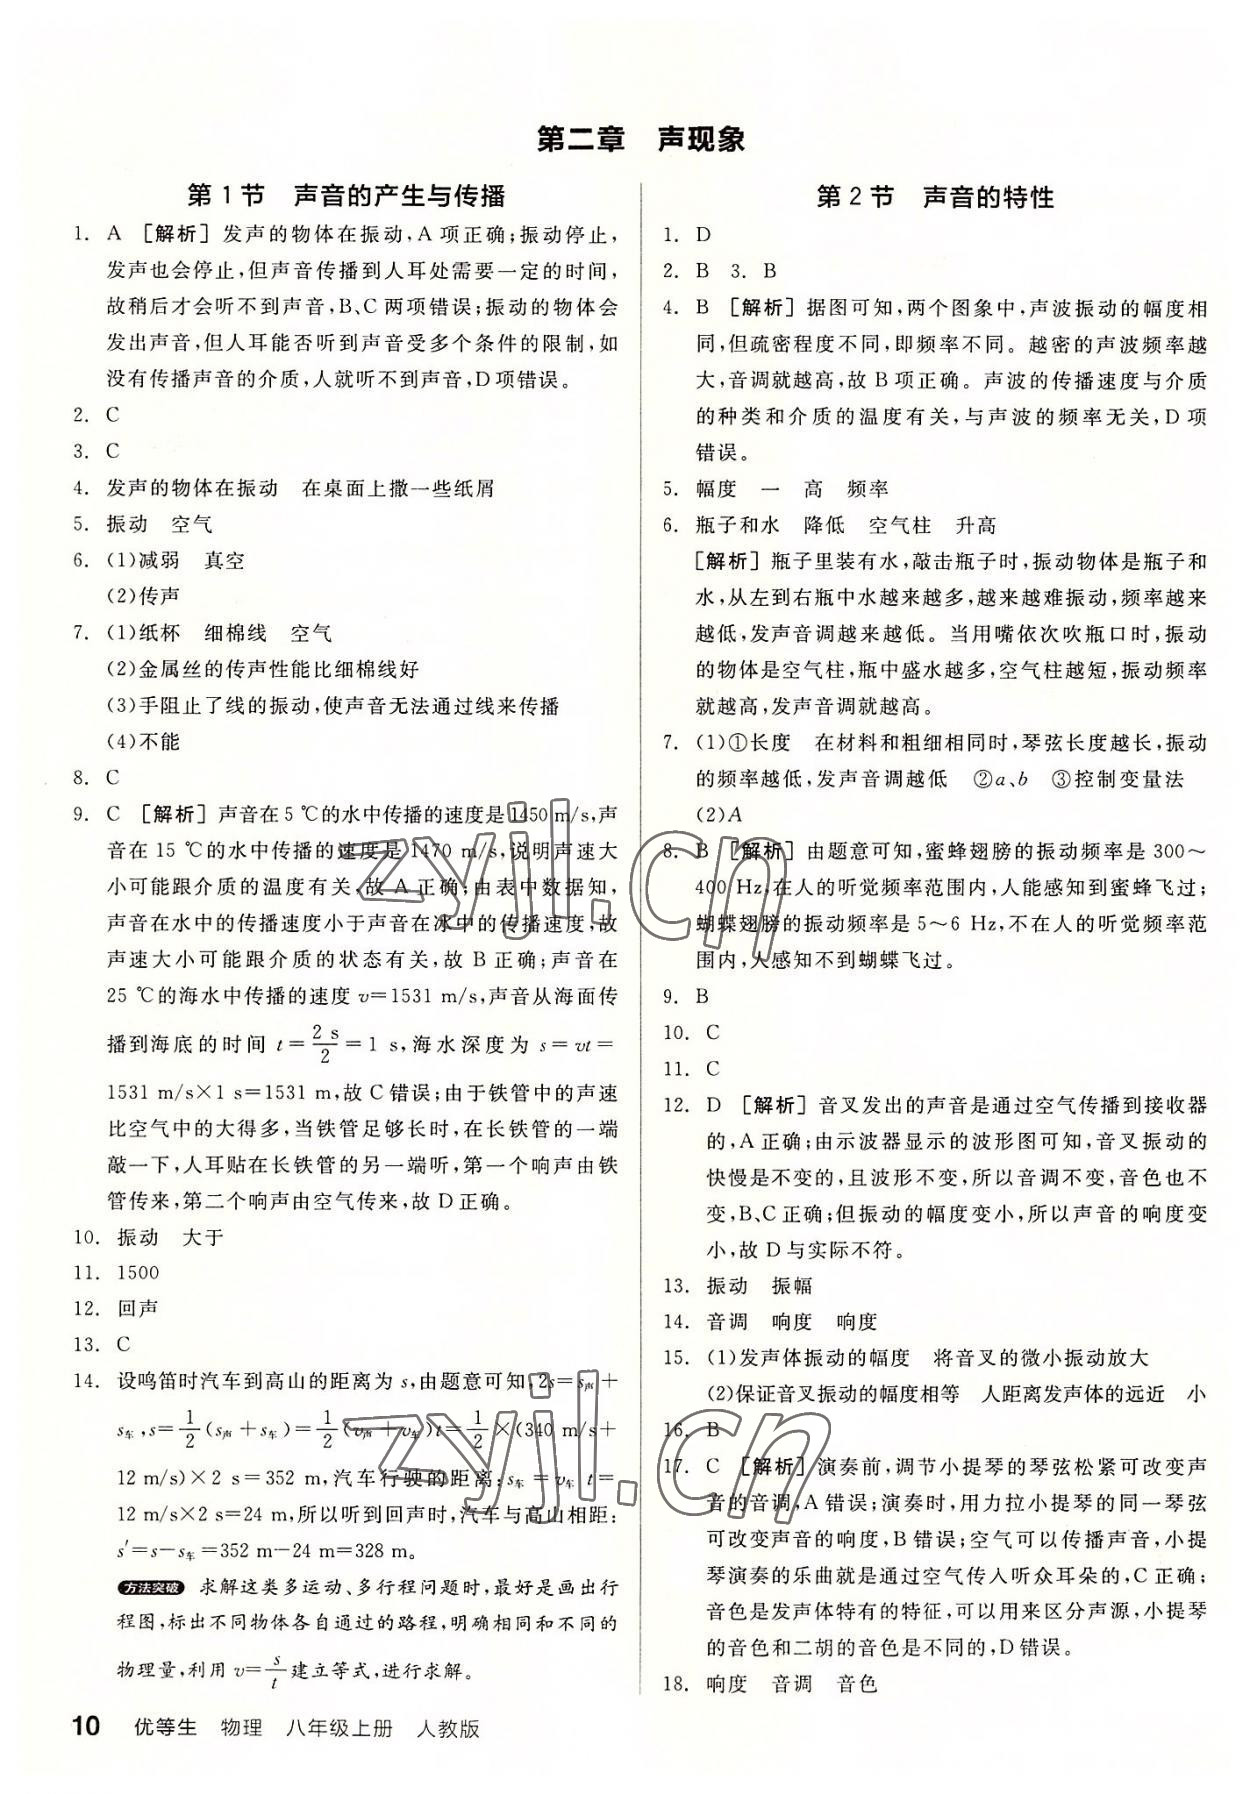 第二章 声现象
第1节 声音的产生与传播
1. A [解析]发声的物体在振动,A项正确;振动停止,
发声也会停止,但声音传播到人耳处需要一定的时间,
故稍后才会听不到声音,B、C两项错误;振动的物体会
发出声音,但人耳能否听到声音受多个条件的限制,如
没有传播声音的介质,人就听不到声音,D项错误。
2. C
3. C
4. 发声的物体在振动 在桌面上撒一些纸屑
5. 振动 空气
6. (1)减弱 真空
(2)传声
7. (1)纸杯 细棉线 空气
(2)金属丝的传声性能比细棉线好
(3)手阻止了线的振动,使声音无法通过线来传播
(4)不能
8. C
9. C [解析]声音在5 ℃的水中传播的速度是1450 m/s,声
音在15 ℃的水中传播的速度是1470 m/s,说明声速大
小可能跟介质的温度有关,故A正确;由表中数据知,
声音在水中的传播速度小于声音在冰中的传播速度,故
声速大小可能跟介质的状态有关,故B正确;声音在
25 ℃的海水中传播的速度v=1531 m/s,声音从海面传
播到海底的时间 t=2 s/2=1 s,海水深度为 s=vt=
1531 m/s×1 s=1531 m,故C错误;由于铁管中的声速
比空气中的大得多,当铁管足够长时,在长铁管的一端
敲一下,人耳贴在长铁管的另一端听,第一个响声由铁
管传来,第二个响声由空气传来,故D正确。
10. 振动 大于
11. 1500
12. 回声
13. C
14. 设鸣笛时汽车到高山的距离为s,由题意可知,2s=s声+
s车,s=1/2(s声+s车)=1/2(v声+v车)t=1/2×(340 m/s+
12 m/s)×2 s=352 m,汽车行驶的距离:s车=v车t=
12 m/s×2 s=24 m,所以听到回声时,汽车与高山相距:
s′=s-s车=352 m-24 m=328 m。
方法突破 求解这类多运动、多行程问题时,最好是画出行
程图,标出不同物体各自通过的路程,明确相同和不同的
物理量,利用v=s/t建立等式,进行求解。
第2节 声音的特性
1. D
2. B 3. B
4. B [解析]据图可知,两个图象中,声波振动的幅度相
同,但疏密程度不同,即频率不同。越密的声波频率越
大,音调就越高,故B项正确。声波的传播速度与介质
的种类和介质的温度有关,与声波的频率无关,D项
错误。
5. 幅度 一 高 频率
6. 瓶子和水 降低 空气柱 升高
[解析]瓶子里装有水,敲击瓶子时,振动物体是瓶子和
水,从左到右瓶中水越来越多,越来越难振动,频率越来
越低,发声音调越来越低。当用嘴依次吹瓶口时,振动
的物体是空气柱,瓶中盛水越多,空气柱越短,振动频率
就越高,发声音调就越高。
7. (1)①长度 在材料和粗细相同时,琴弦长度越长,振动
的频率越低,发声音调越低 ②a、b ③控制变量法
(2)A
8. B [解析]由题意可知,蜜蜂翅膀的振动频率是300～
400 Hz,在人的听觉频率范围内,人能感知到蜜蜂飞过;
蝴蝶翅膀的振动频率是5～6 Hz,不在人的听觉频率范
围内,人感知不到蝴蝶飞过。
9. B
10. C
11. C
12. D [解析]音叉发出的声音是通过空气传播到接收器
的,A正确;由示波器显示的波形图可知,音叉振动的
快慢是不变的,且波形不变,所以音调不变,音色也不
变,B、C正确;但振动的幅度变小,所以声音的响度变
小,故D与实际不符。
13. 振动 振幅
14. 音调 响度 响度
15. (1)发声体振动的幅度 将音叉的微小振动放大
(2)保证音叉振动的幅度相等 人距离发声体的远近 小
16. B
17. C [解析]演奏前,调节小提琴的琴弦松紧可改变声
音的音调,A错误;演奏时,用力拉小提琴的同一琴弦
可改变声音的响度,B错误;空气可以传播声音,小提
琴演奏的乐曲就是通过空气传入听众耳朵的,C正确;
音色是发声体特有的特征,可以用来区分声源,小提琴
的音色和二胡的音色是不同的,D错误。
18. 响度 音调 音色
zyjl.cn
zyjl.cn
10 优等生 物理 八年级上册 人教版